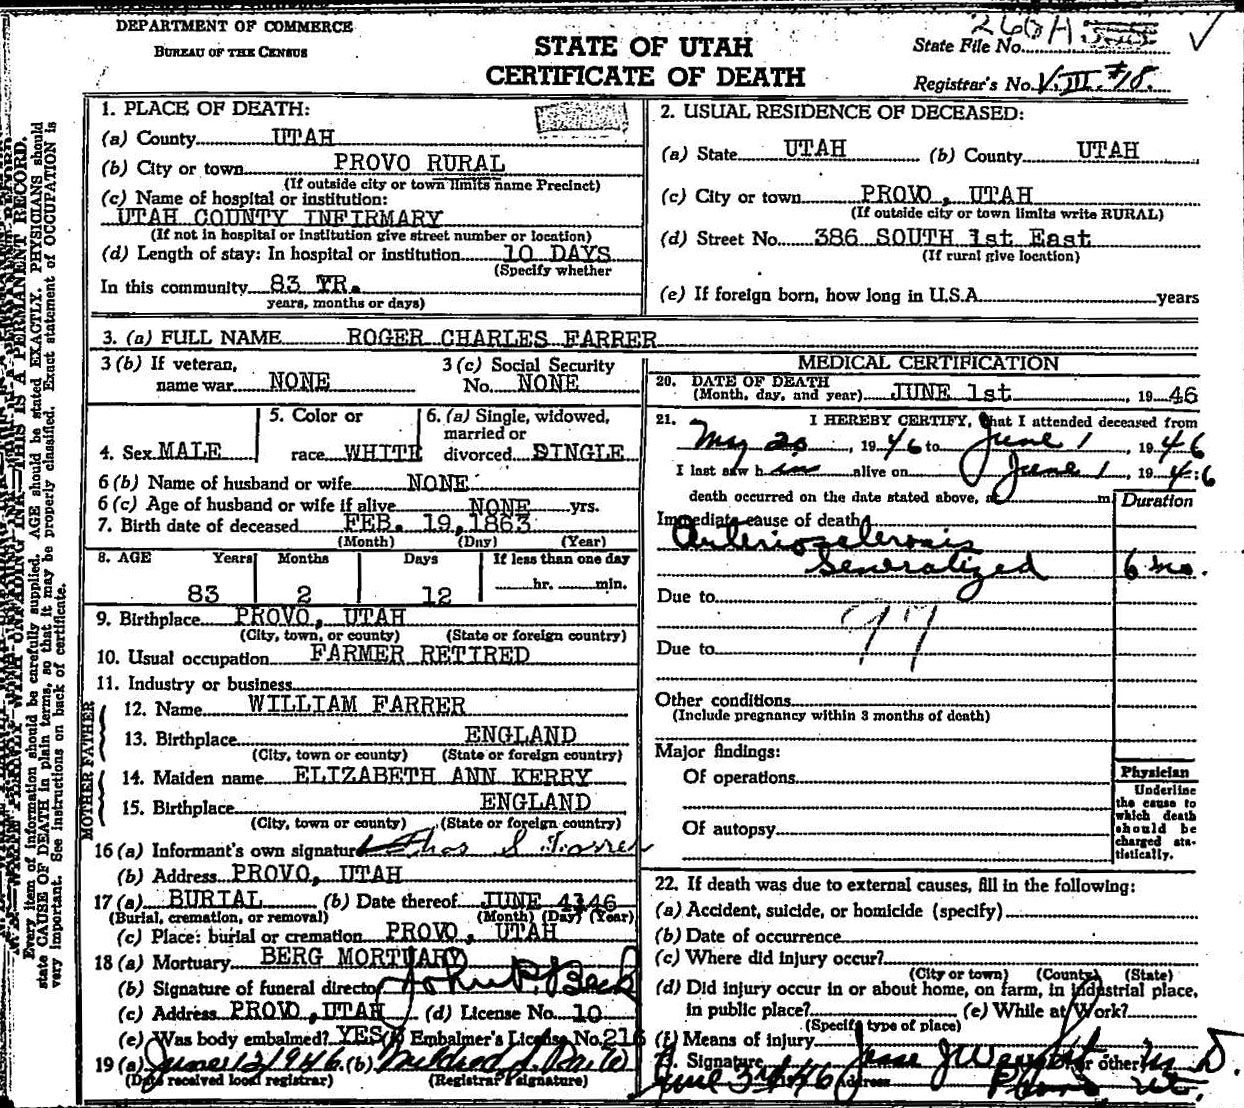 DEPARTMENT OF COMMERCE
BUREAU OF THE CENSUS
STATE OF UTAH
CERTIFICATE OF DEATH
State File No.
Registrar's No. V. III. #18.
Every item of information should be carefully supplied. AGE should be stated EXACTLY. PHYSICIANS should
state CAUSE OF DEATH in plain terms, so that it may be properly classified. Exact statement of OCCUPATION is
very important. See instructions on back of certificate.
1. PLACE OF DEATH:
(a) County UTAH
(b) City or town PROVO RURAL
(If outside city or town limits name Precinct)
(c) Name of hospital or institution:
UTAH COUNTY INFIRMARY
(If not in hospital or institution give street number or location)
(d) Length of stay: In hospital or institution 10 DAYS
(Specify whether
In this community 83 YR.
years, months or days)
2. USUAL RESIDENCE OF DECEASED:
(a) State UTAH (b) County UTAH
(c) City or town PROVO, UTAH
(If outside city or town limits write RURAL)
(d) Street No. 386 SOUTH 1st East
(If rural give location)
(e) If foreign born, how long in U.S.A. years
3. (a) FULL NAME ROGER CHARLES FARRER
3 (b) If veteran,
name war NONE
3 (c) Social Security
No. NONE
4. Sex MALE
5. Color or
race WHITE
6. (a) Single, widowed,
married or
divorced SINGLE
6 (b) Name of husband or wife NONE
6 (c) Age of husband or wife if alive NONE yrs.
7. Birth date of deceased FEB. 19, 1863
(Month) (Day) (Year)
8. AGE Years Months Days If less than one day
83 2 12 hr. min.
9. Birthplace PROVO, UTAH
(City, town, or county) (State or foreign country)
10. Usual occupation FARMER RETIRED
11. Industry or business
FATHER
12. Name WILLIAM FARRER
13. Birthplace ENGLAND
(City, town or county) (State or foreign country)
MOTHER
14. Maiden name ELIZABETH ANN KERRY
15. Birthplace ENGLAND
(City, town or county) (State or foreign country)
16 (a) Informant's own signature Thos S Farrer
(b) Address PROVO, UTAH
17 (a) BURIAL (b) Date thereof JUNE 4 46
(Burial, cremation, or removal) (Month) (Day) (Year)
(c) Place: burial or cremation PROVO, UTAH
18 (a) Mortuary BERG MORTUARY
(b) Signature of funeral director
(c) Address PROVO, UTAH (d) License No. 10
(e) Was body embalmed? YES (f) Embalmer's License No. 216
19 (a) June 12 1946 (b) Mildred
(Date received local registrar) (Registrar's signature)
MEDICAL CERTIFICATION
20. DATE OF DEATH
(Month, day, and year) JUNE 1st, 19 46
21. I HEREBY CERTIFY, that I attended deceased from
May 20, 1946 to June 1, 1946
I last saw him alive on June 1, 1946
death occurred on the date stated above, at m.
Duration
Immediate cause of death
Arteriosclerosis
Generalized 6 mo.
Due to
97
Due to
Other conditions
(Include pregnancy within 3 months of death)
Major findings:
Of operations
Of autopsy
Physician
Underline
the cause to
which death
should be
charged sta-
tistically.
22. If death was due to external causes, fill in the following:
(a) Accident, suicide, or homicide (specify)
(b) Date of occurrence
(c) Where did injury occur?
(City or town) (County) (State)
(d) Did injury occur in or about home, on farm, in industrial place,
in public place? (e) While at Work?
(Specify type of place)
(f) Means of injury
Signature or other M D.
June 3rd 46 Address Provo Ut.